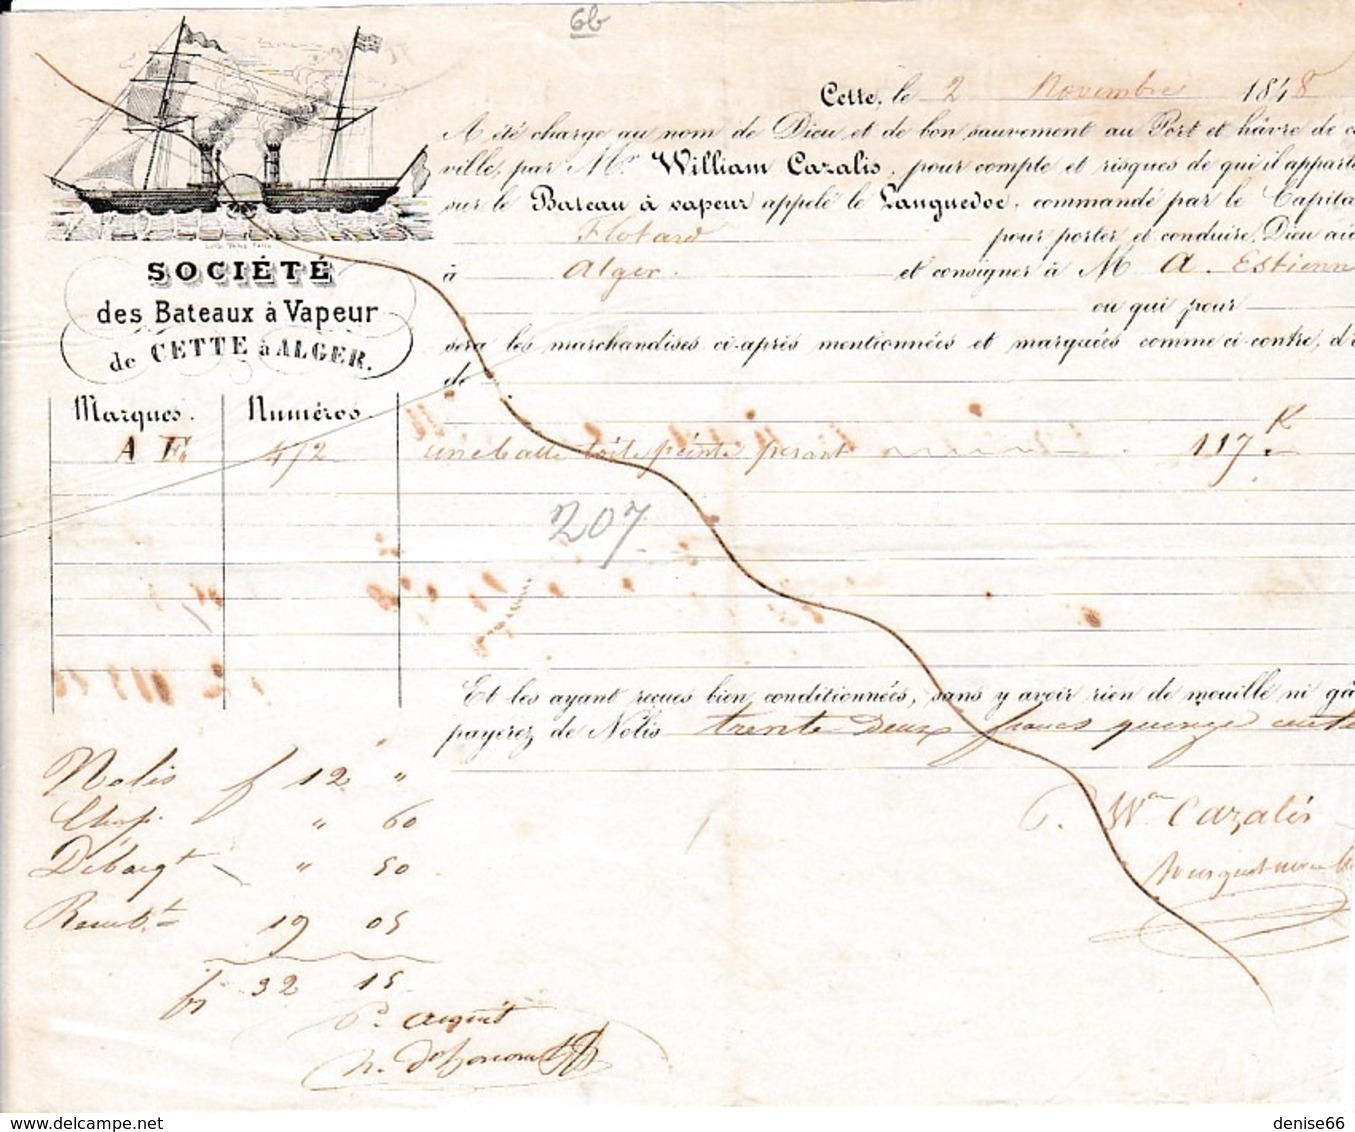 6b
Cette, le 2 Novembre 1848
A été chargé au nom de Dieu et de bon sauvement au Port et hâvre de c
ville, par Mr. William Cazalis, pour compte et risques de qui il apparti
sur le Bateau à vapeur appelé le Languedoc, commandé par le Capita
Flotard pour porter et conduire, Dieu aid
à Alger. et consigner à M A. Estienn
ou qui pour
sera les marchandises ci-après mentionnées et marquées comme ci-contre, d'
de
SOCIÉTÉ
des Bateaux à Vapeur
de CETTE à ALGER.
Marques. Numéros.
A E 452 une balle toile peinte pesant 117 K
207
Et les ayant reçues bien conditionnées, sans y avoir rien de mouillé ni gâ
payerez de Nolis trente deux francs quinze centi
Nolis f 12 "
Chap. " 60
Débarqt " 50
Rembt 19 05
fs 32 15
P. Wam Cazalis
Pr acquit
denise66